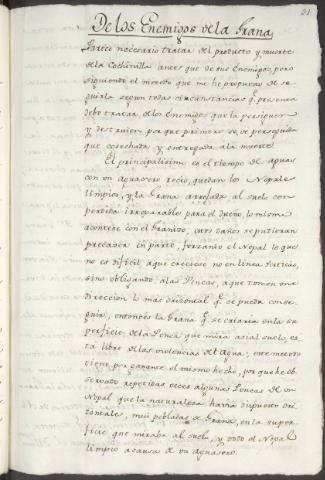 21
De los Enemigos de la Grana
Parece necesario tratar del producto y muerte
de la Cochinilla antes que de sus Enemigos, pero
siguiendo el metodo que me he propuesto de se
guirla segun todas circunstancias q. presenta
debo tratar de los Enemigos que la persiguen
y destruien, por que primero se ve perseguida
que cosechada y entregada a la muerte.
El principalisimo es el tiempo de aguas
con un aguasero recio, quedan los Nopales
limpios, y la Grana arrojada al suelo con
perdida irreparable para el dueño, lo mismo
acontece con el Granizo, cuios daños se pudieran
precaber en parte, forzando el Nopal lo que
no es dificil aque creciese no en linea bertical,
sino obligando, alas Pencas, aque tomen una
direccion lo más orizontal q. se pueda conse-
guir, entonces la Grana q. se criaria en la su
perficie de la Penca que mira asia el suelo, es
ta libre de las violencias del Agua, este metodo
tiene por garante el mismo hecho, por que he ob
servado repetidas veces algunas Pencas de un
Nopal que la naturaleza havia dispuesto ori
zontales, mui pobladas de Grana, en la super
ficie que miraba al suelo, y todo el Nopal
limpio a causa de un aguasero.